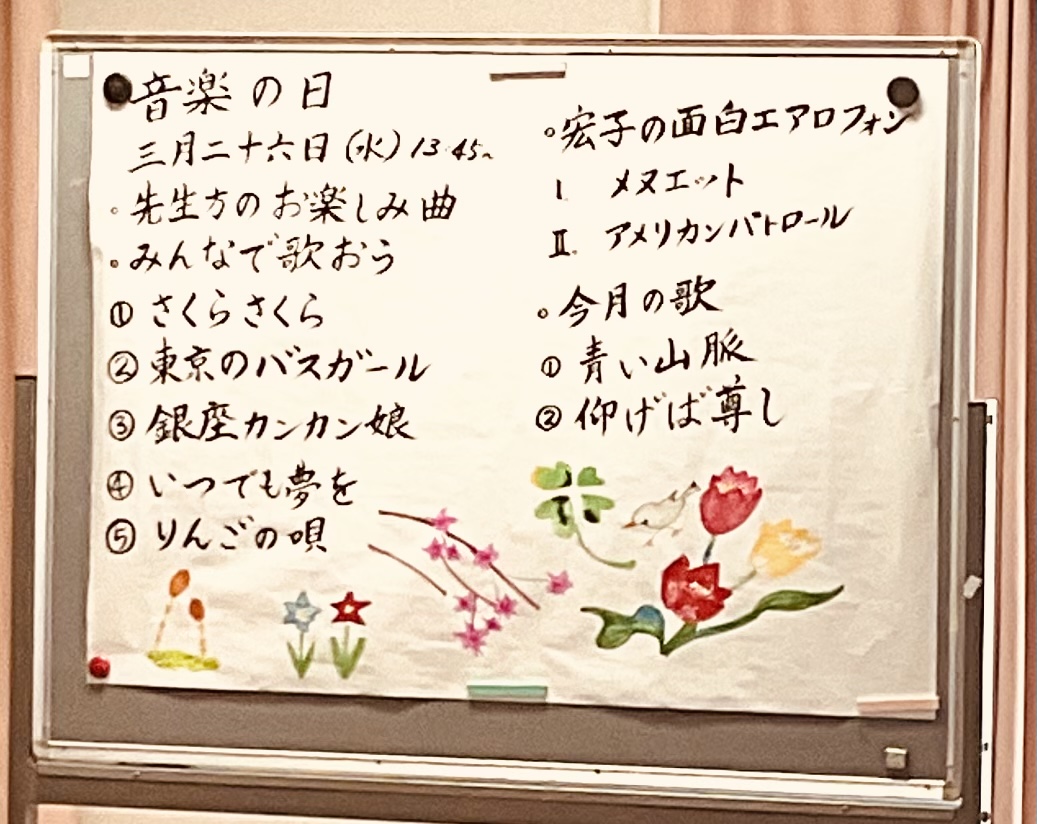 音楽の日
三月二十六日(水)13:45~
。先生方のお楽しみ曲
。みんなで歌おう
① さくらさくら
② 東京のバスガール
③ 銀座カンカン娘
④ いつでも夢を
⑤ りんごの唄
。宏子の面白エアロフォン
I. メヌエット
II. アメリカンパトロール
。今月の歌
① 青い山脈
② 仰げば尊し